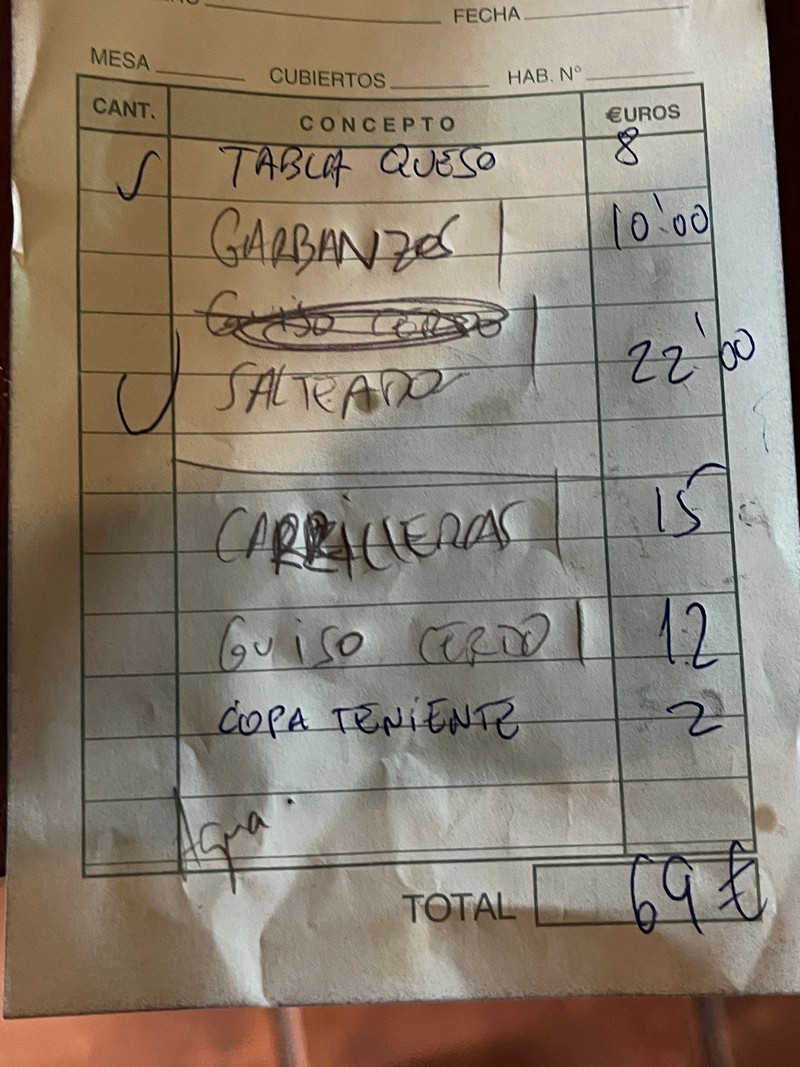 FECHA
MESA CUBIERTOS HAB. Nº
CANT. CONCEPTO €UROS
TABLA QUESO 8
GARBANZOS 10'00
GUISO CERDO
SALTEADO 22'00
CARRILLERAS 15
GUISO CERDO 12
COPA TENIENTE 2
Agua.
TOTAL 69 €